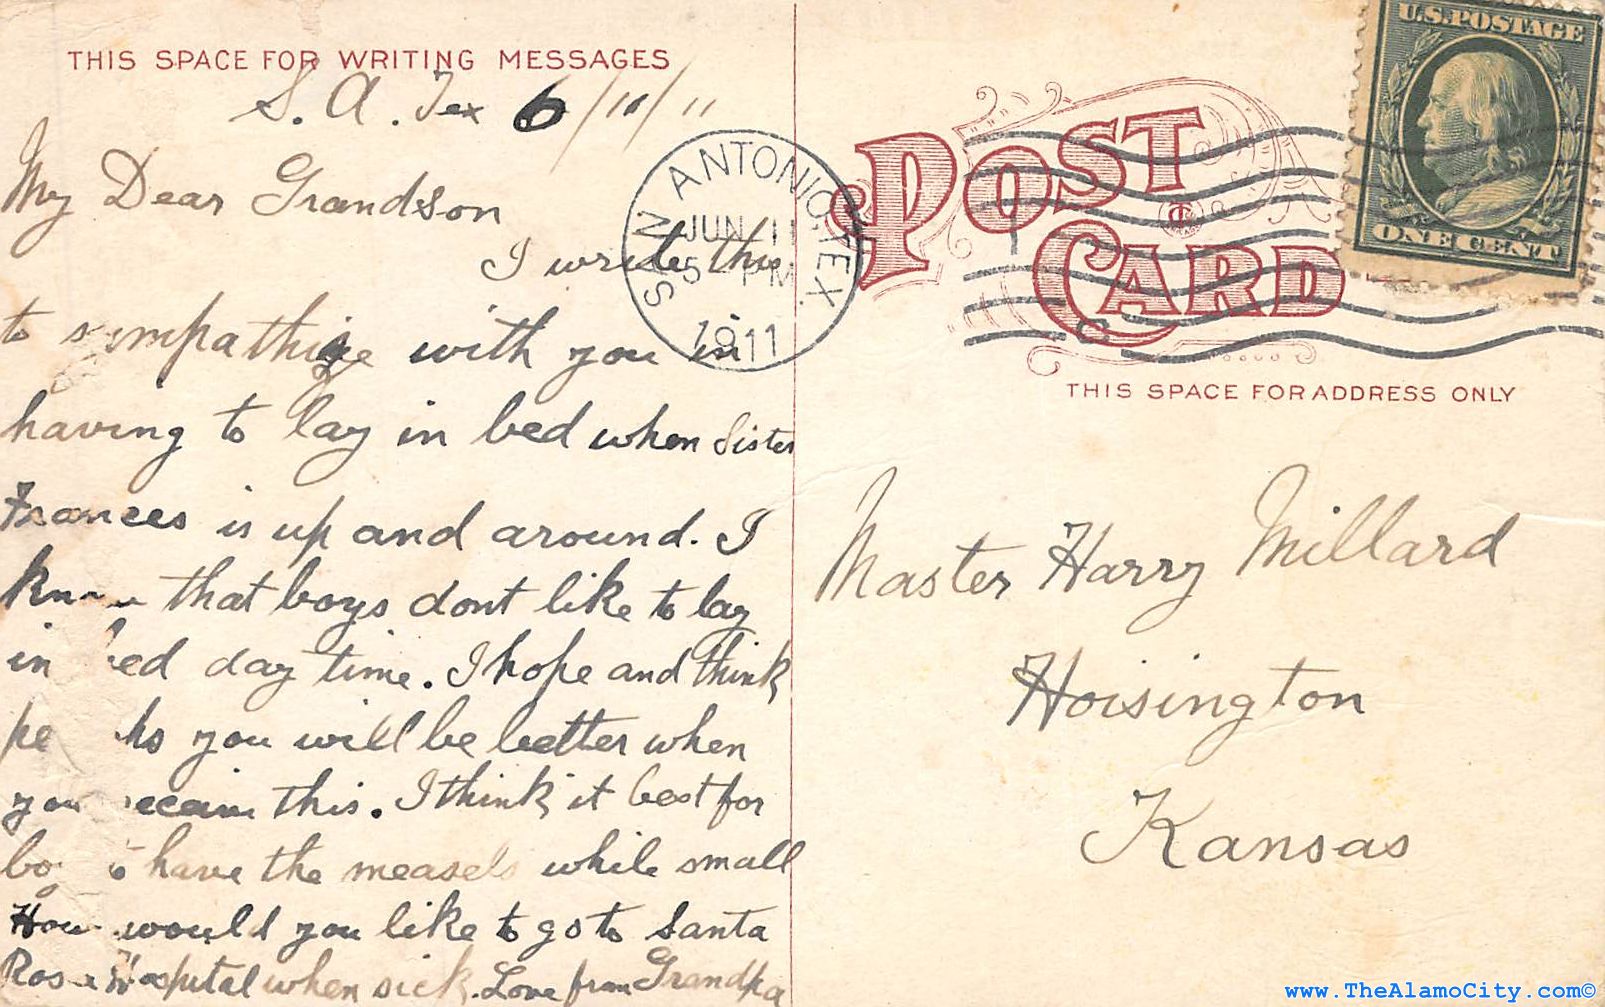 THIS SPACE FOR WRITING MESSAGES
S. A. Tex 6/11/11
My Dear Grandson
I write this
to sympathize with you in
having to lay in bed when Sister
Frances is up and around. I
know that boys dont like to lay
in bed day time. I hope and think
you will be better when
you this. I think it best for
have the measels while small
How would you like to go to Santa
Rosa Hospital when sick. Love from Grandpa
SAN ANTONIO, TEX.
JUN 11
5 PM
1911
POST CARD
U.S. POSTAGE
ONE CENT
THIS SPACE FOR ADDRESS ONLY
Master Harry Millard
Hoisington
Kansas
www.TheAlamoCity.com©